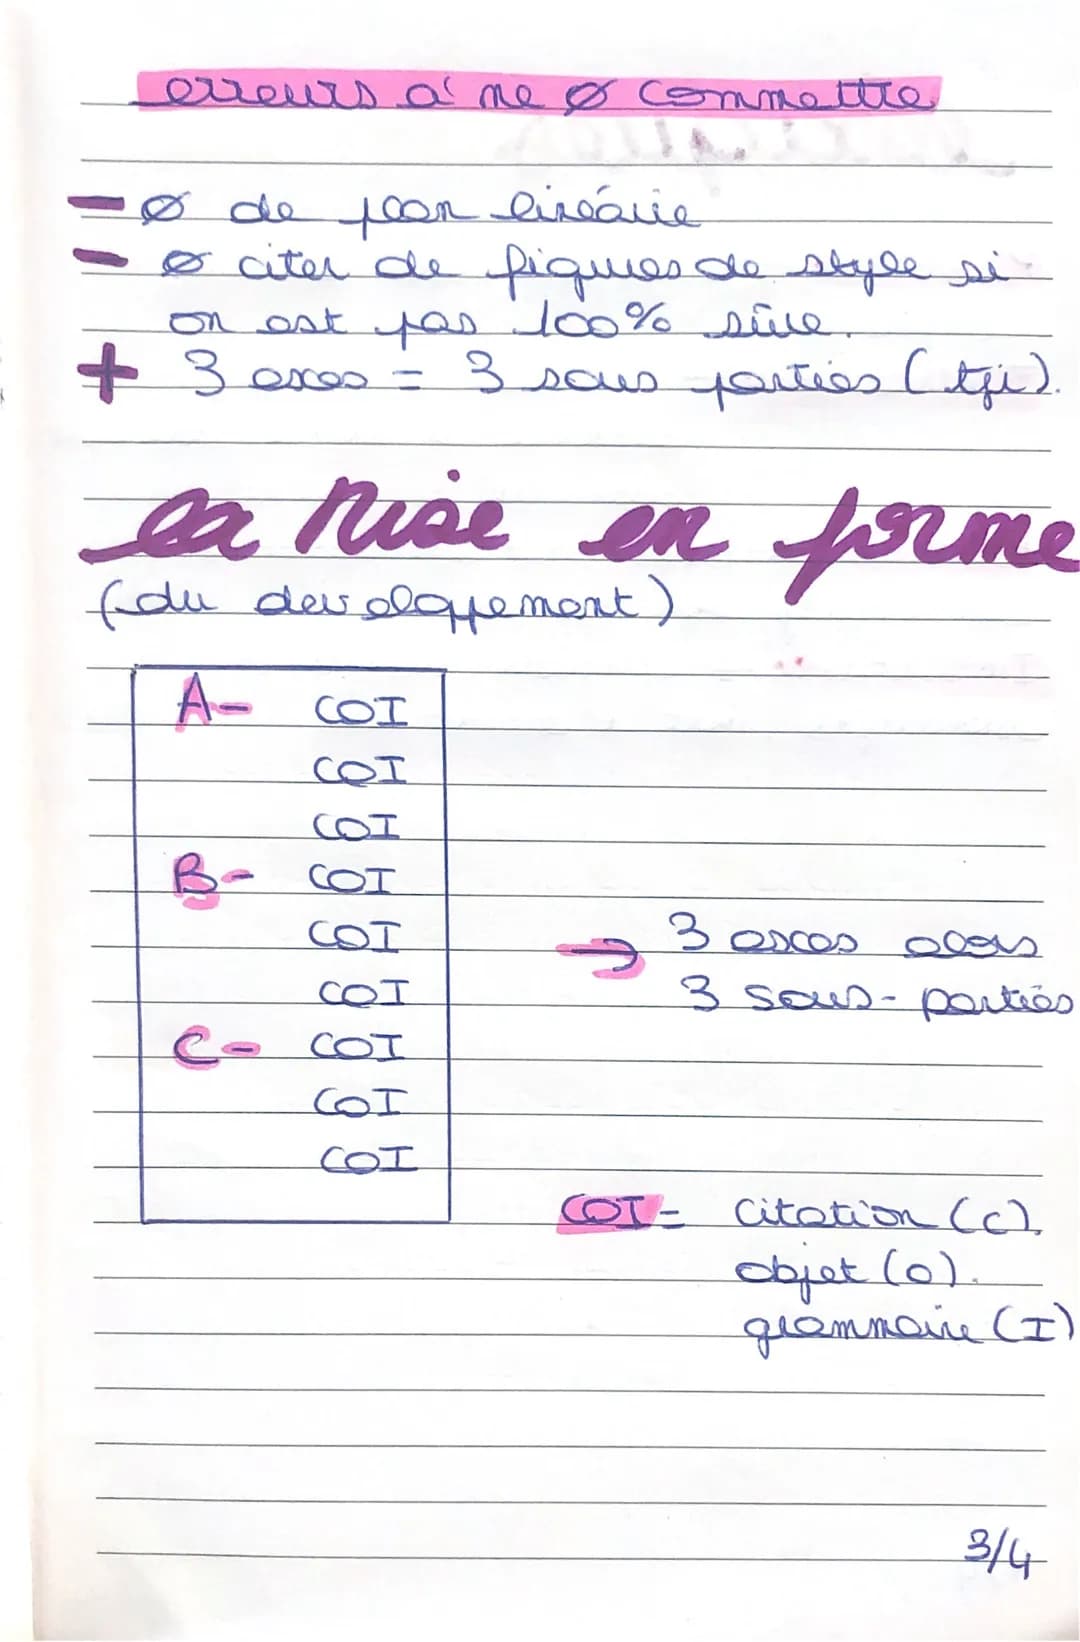 erreurs à ne ø commettre
- ø de plan linéaire
- ø citer de figures de style si
on est pas 100% sûre.
+ 3 axes = 3 sous parties (tjr).
la mise en forme
(du developpement)
A- COI
COI
COI
B- COI
COI
COI
C- COI
COI
COI
→ 3 axes alors
3 sous-parties
COI = Citation (C).
objet (O).
grammaire (I)
3/4